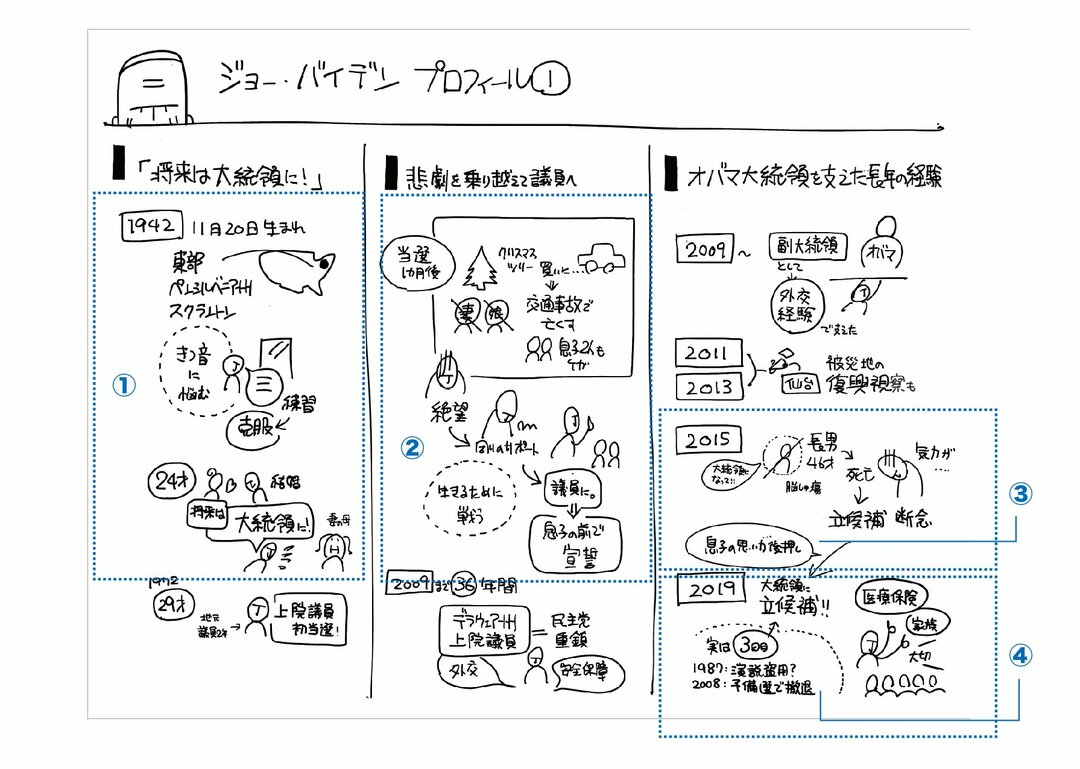 ジョー・バイデン プロフィール①
「将来は大統領に!」
1942 11月20日生まれ
東部
ペンシルベニア州
スクラントン
きつ音
に
悩む
J
練習
克服
①
24才
結婚
将来は
大統領に!
妻の母
1972
29才
地元
議員2年
J
上院議員
初当選!
悲劇を乗り越えて議員へ
当選
1カ月後
クリスマス
ツリー
買いに…
妻 娘
交通事故で
亡くす
息子2人も
ケガ
絶望
②
周りのサポート
生きるために
戦う
議員に。
息子の前で
宣誓
2009まで36年間
デラウェア州
上院議員
=民主党
重鎮
外交
安全保障
オバマ大統領を支えた長年の経験
2009~
副大統領
として
オバマ
外交
経験
で支えた
2011
2013
仙台
被災地の
復興視察も
2015
大統領に
なって!!
長男
46才
脳しゅ瘍
死亡
気力が
…
立候補 断念
③
息子の思いが後押し
2019
大統領に
立候補!!
実は3回目
1987:演説盗用?
2008:予備選で撤退
医療保険
家族
大切
④